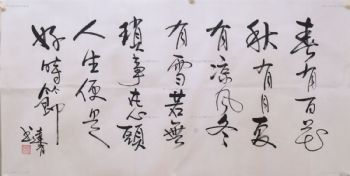 春有百花
秋有月夏
有凉风冬
有雪若無
瑣事挂心頭
人生便是
好時節